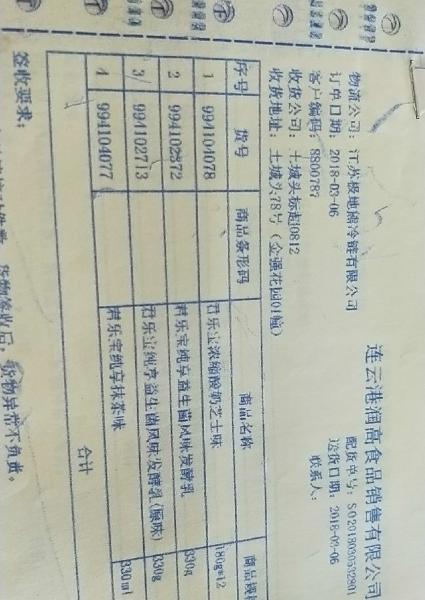 连云港润高食品销售有限公司
物流公司: 江苏极地熊冷链有限公司
配货单号: SO20180306532801
订单日期: 2018-03-06
送货日期: 2018-03-06
客户编码: 8800787
联系人:
收货公司: 土城头标超0812
收货地址: 土城头78号(金强花园01幢)
序号 货号 商品条形码 商品名称 商品规
1 994104078 君乐宝浓缩酸奶芝士味 180g*12
2 994102872 君乐宝纯享益生菌风味发酵乳 330g
3 994102713 君乐宝纯享益生菌风味发酵乳(原味) 330g
4 994104077 君乐宝纯享抹茶味 330ml
合计
签收要求:
货物签收后, 货物异常不负责。